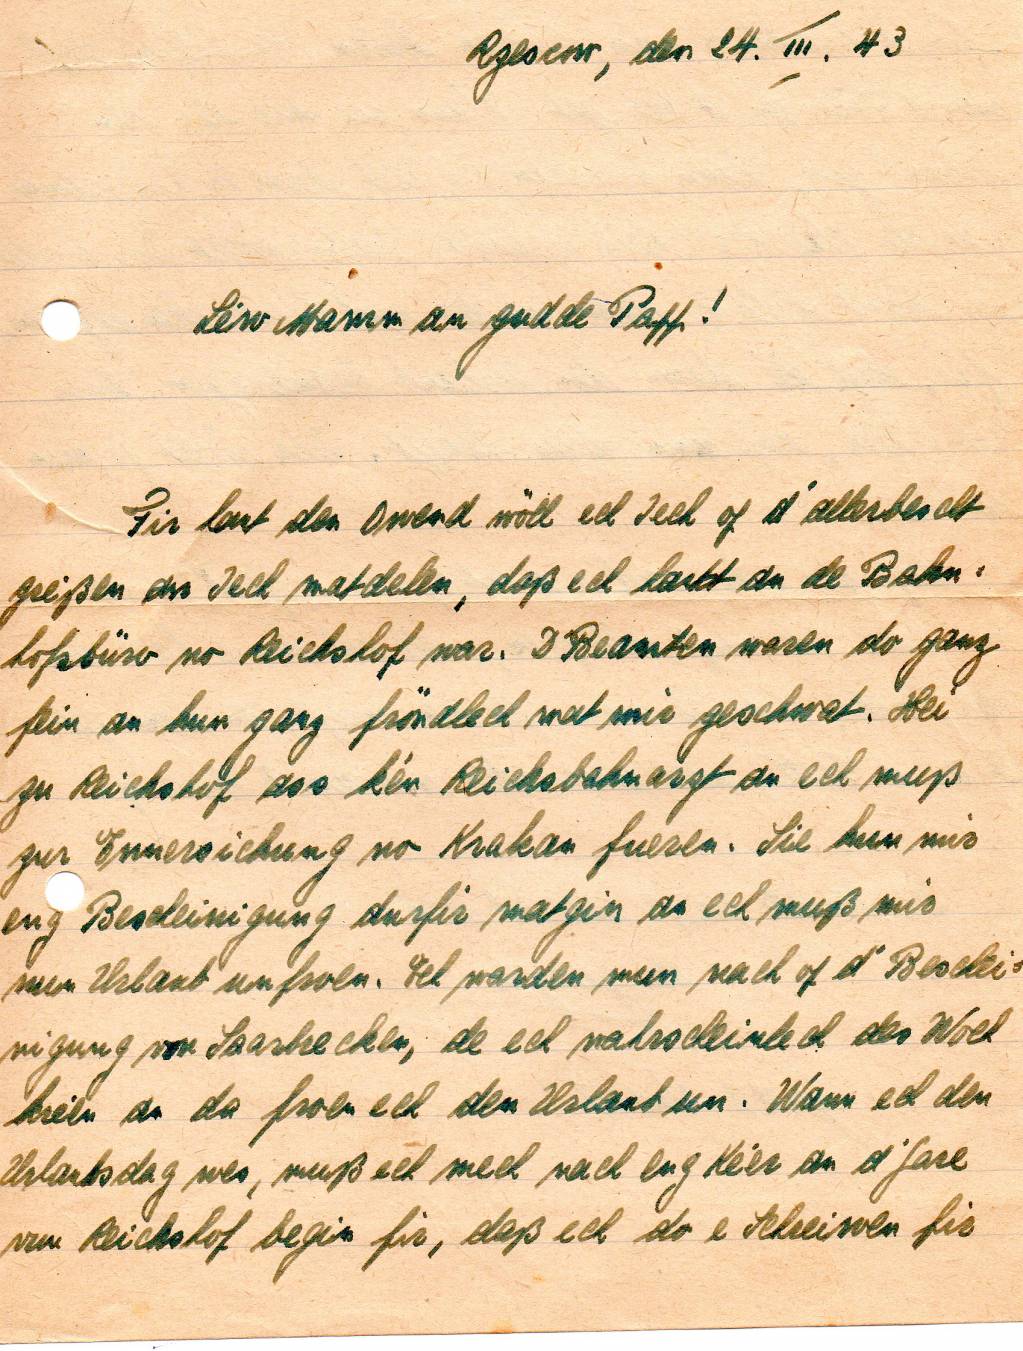 Rzescow, den 24. III. 43
Léiw Mamm an gudde Papp!
Fir haut den Owend wöll ech Iech of d'allerbescht
greißen an Iech matdelen, daß ech hautt an de Bahn-
hofsbüro no Reichshof war. D'Beamten waren do ganz
fein an hun ganz fröndlech mat mir geschwat. Hei
zu Reichshof ass kén Reichsbahnarzt an ech muß
zur Ennersichung no Krakau fueren. Sie hun mir
eng Bescheinigung dorfir matgin an ech muß mir
nun Urlaub unfroen. Ech warden nun nach of d'Beschei-
nigung vun Saarbrecken, de ech wahrscheinlech des Woch
kréin an da froen ech den Urlaub un. Wann ech den
Urlaubsdag wes, muß ech mech nach eng Kéer an d'Gare
vun Reichshof begin fir, daß ech do e Schreiwen fir